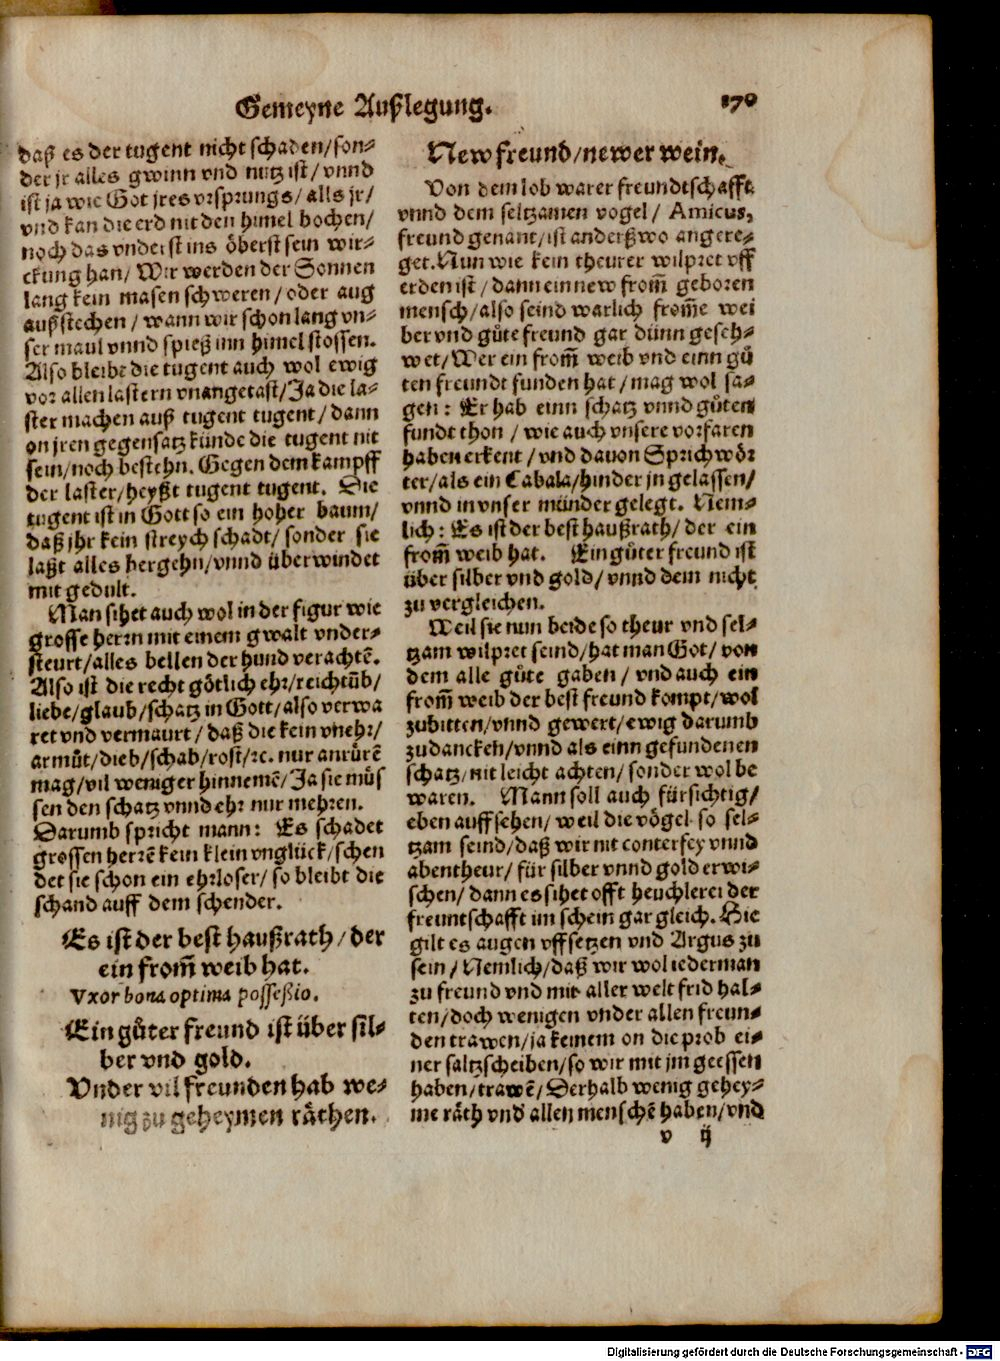 Gemeyne Außlegung.
170
daß es der tugent nicht schaden/son⸗
der jr alles gwinn vnd nutz ist/vnnd
ist ja wie Got jres vrsprungs/alls jr/
vnd kan die erd nit den himel bochen/
noch das vnderst ins öberst sein wir⸗
ckung han/Wir werden der Sonnen
lang kein masen schweren/oder aug
außstechen/wann wir schon lang vn⸗
ser maul vnnd spieß inn himel stossen.
Also bleibt die tugent auch wol ewig
vor allen lastern vnangetast/Ja die la⸗
ster machen auß tugent tugent/dann
on jren gegensatz künde die tugent nit
sein/noch bestehn. Gegen dem kampff
der laster/heyßt tugent tugent. Die
tugent ist in Gott so ein hoher baum/
daß jhr kein streych schadt/sonder sie
laßt alles hergehn/vnnd überwindet
mit gedult.
Man sihet auch wol in der figur wie
grosse herrn mit einem gwalt vnder⸗
steurt/alles bellen der hund verachtē.
Also ist die recht götlich ehr/reichtūb/
liebe/glaub/schatz in Gott/also verwa
ret vnd vermaurt/daß die kein vnehr/
armůt/dieb/schab/rost/ꝛc. nur anrürē
mag/vil weniger hinnemē/Ja sie můs
sen den schatz vnnd ehr nur mehren.
Darumb spricht mann: Es schadet
grossen herrē kein klein vnglück/schen
det sie schon ein ehrloser/so bleibt die
schand auff dem schender.
Es ist der best haußrath/der
ein from̃ weib hat.
Vxor bona optima possessio.
Ein gůter freund ist über sil⸗
ber vnd gold.
Vnder vil freunden hab we⸗
nig zu geheymen räthen.
New freund/newer wein.
Von dem lob warer freundtschafft
vnnd dem seltzamen vogel/Amicus,
freund genant/ist anderßwo angere⸗
get. Nun wie kein theurer wilpret vff
erden ist/dann ein new from̃ geboren
mensch/also seind warlich from̃e wei
ber vnd gůte freund gar dünn gesch⸗
wet/Wer ein from̃ weib vnd einn gů
ten freundt funden hat/mag wol sa⸗
gen: Er hab einn schatz vnnd gůten
fundt thon/wie auch vnsere vorfaren
haben erkent/vnd dauon Sprichwör
ter/als ein Cabala/hinder jn gelassen/
vnnd in vnser münder gelegt. Nem⸗
lich: Es ist der best haußrath/der ein
from̃ weib hat. Ein gůter freund ist
über silber vnd gold/vnnd dem nicht
zu vergleichen.
Weil sie nun beide so theur vnd sel⸗
tzam wilpret seind/hat man Got/von
dem alle gůte gaben/vnd auch ein
from̃ weib der best freund kompt/wol
zubitten/vnnd gewert/ewig darumb
zudancken/vnnd als einn gefundenen
schatz/nit leicht achten/sonder wol be
waren. Mann soll auch fürsichtig/
eben auffsehen/weil die vögel so sel⸗
tzam seind/daß wir nit conterfey vnnd
abentheur/für silber vnnd gold erwi⸗
schen/dann es sihet offt heuchlerei der
freuntschafft im schein gar gleich. Hie
gilt es augen vffsetzen vnd Argus zu
sein/Nemlich/daß wir wol iederman
zu freund vnd mit aller welt frid hal⸗
ten/doch wenigen vnder allen freun⸗
den trawen/ja keinem on die prob ei⸗
ner saltzscheiben/so wir mit jm geessen
haben/trawē/Derhalb wenig gehey⸗
me räth vnd allen menschē haben/vnd
v ij
Digitalisierung gefördert durch die Deutsche Forschungsgemeinschaft - DFG